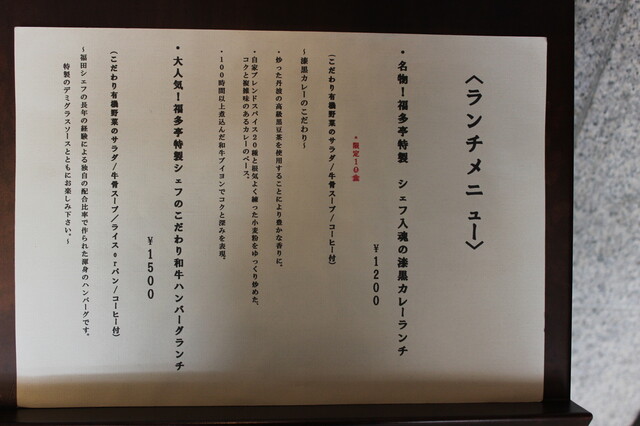 〈ランチメニュー〉
・名物！福多亭特製　シェフ入魂の漆黒カレーランチ
￥1200
・限定10食
(こだわり有機野菜のサラダ/牛骨スープ/コーヒー付)
～漆黒カレーのこだわり～
・炒った丹波の高級黒豆茶を使用することにより豊かな香りに。
・自家ブレンドスパイス20種と根気よく練った小麦粉をゆっくり炒めた、
コクと複雑味のあるカレーのベース。
・100時間以上煮込んだ和牛ブイヨンでコクと深みを表現。
・大人気！福多亭特製　シェフのこだわり和牛ハンバーグランチ
￥1500
(こだわり有機野菜のサラダ/牛骨スープ/ライスorパン/コーヒー付)
～福田シェフの長年の経験による独自の配合比率で作られた渾身のハンバーグです。
特製のデミグラスソースとともにお楽しみ下さい。～